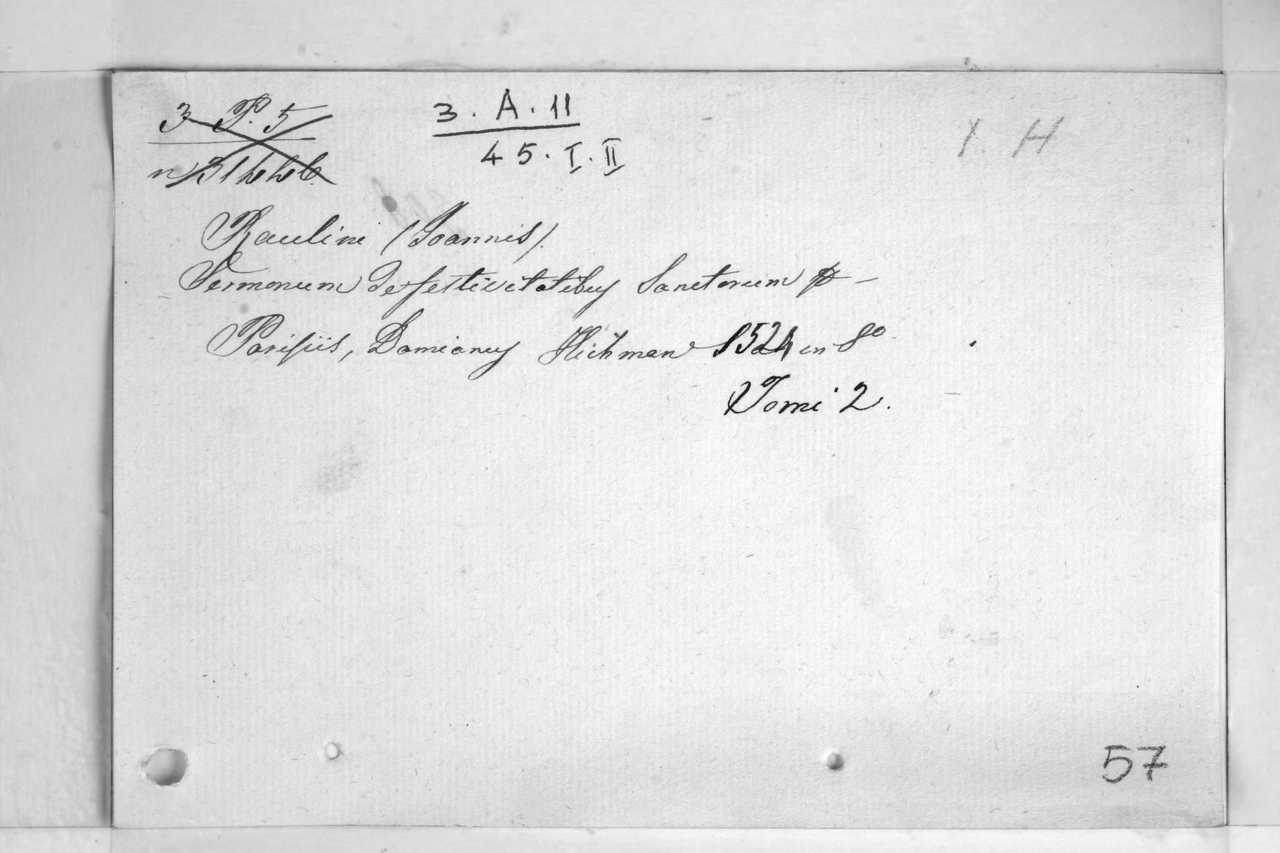 3 P. 5
3. A. 11
45. I. II
Y. H
Raulini (Joannis).
Sermonum de festivitatibus Sanctorum
Parisiis, Damianus Hichman 1524 in 8º
Tomi 2.
57